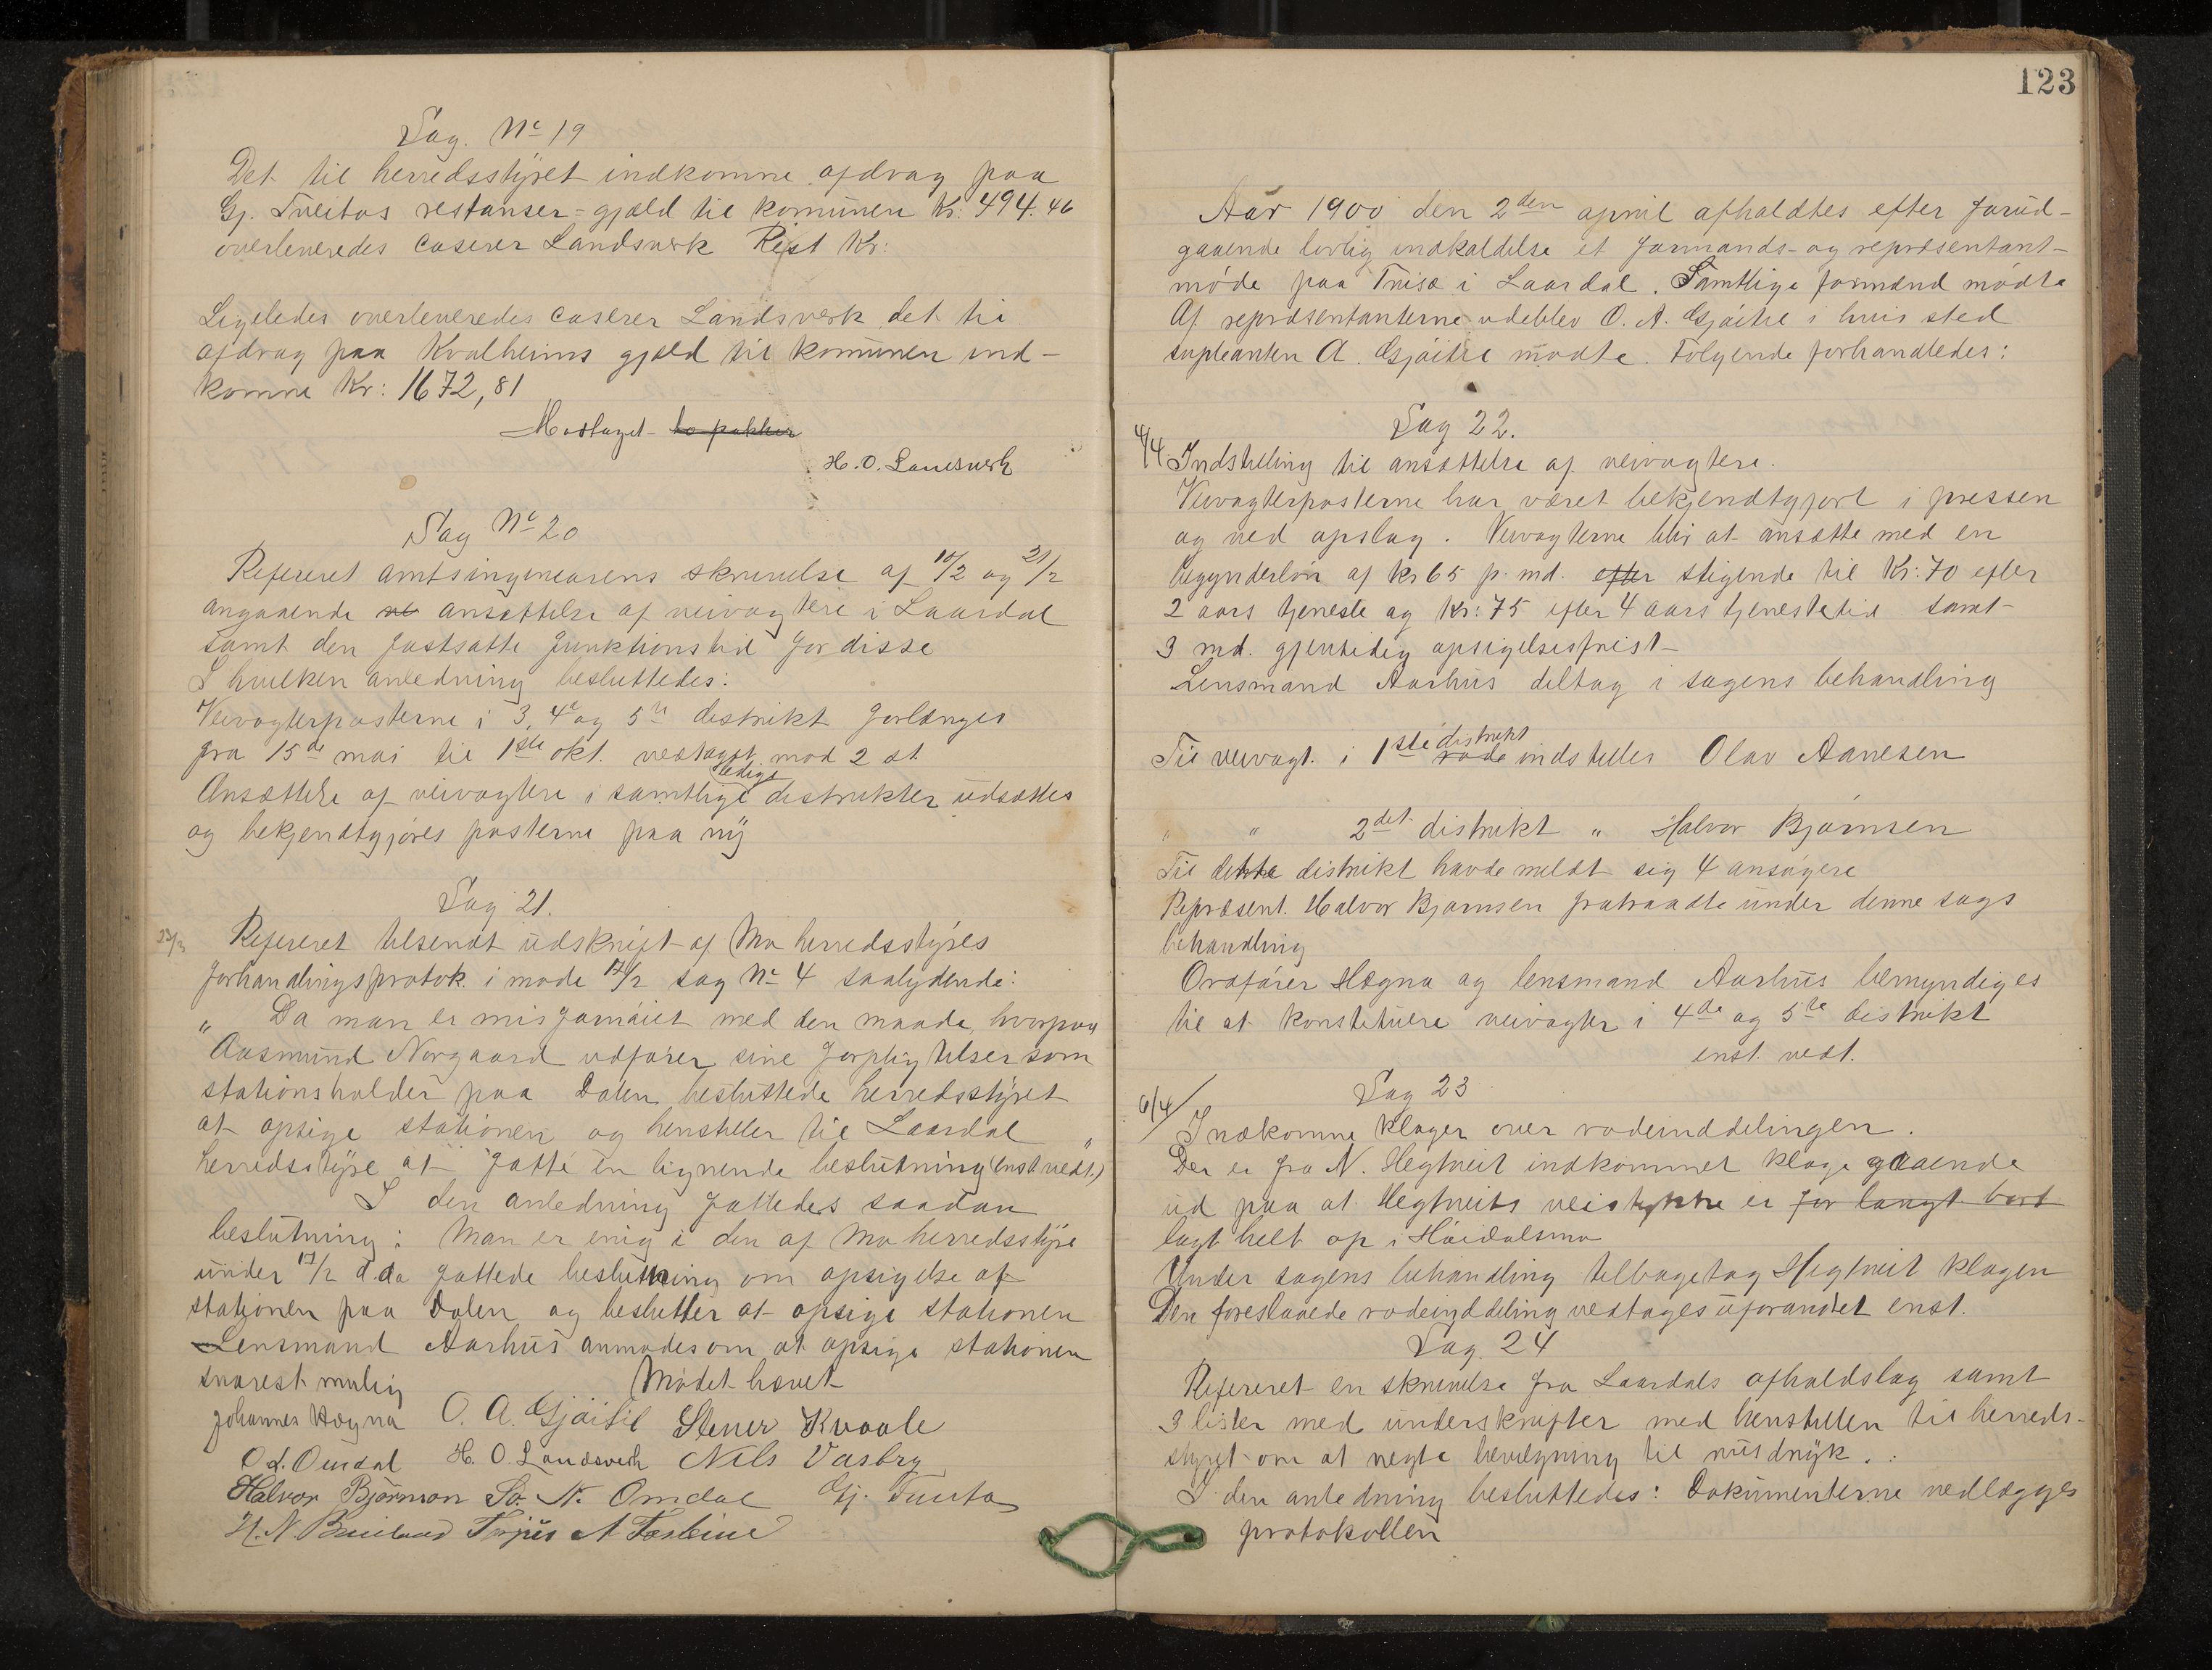 Sag. No 19
Det til herredsstyret indkomne afdrag paa
Gj. Tveitos restanser=gjæld til komunen Kr: 494.46
overleveredes caserer Landsverk Rest Kr:
Ligeledes overleveredes caserer Landsverk det til
afdrag paa Kvalheims gjæld til komunen ind-
komne Kr: 1672,81
Modtaget to pakker
H. O. Landsverk
Sag No 20
Refereret amtsingeniørens skrivelse af 10/2 og 21/2
angaaende ansættelse af veivogtere i Laardal
samt den fastsatte funktionstid for disse
I hvilken anledning besluttedes:
Veivogterposterne i 3, 4e og 5te distrikt forlænges
fra 15de mai til 1ste okt. vedtaget mod 2 st.
Ansættelse af veivogtere i samtlige ledige distrikter udsættes
og bekjendtgjøres posterne paa ny
Sag 21.
23/3 Refereret tilsendt udskrift af Mo herredsstyres
forhandlingsprotok. i møde 17/2 sag No 4 saalydende:
" Da man er misfornøiet med den maade, hvorpaa
Aasmund Norgaard udfører sine forpligtelser som
stationsholder paa Dalen besluttede herredsstyret
at opsige stationen og henstiller til Laardal
herredsstyre at fatte en lignende beslutning (enst. vedt.) "
I den anledning fattedes saadan
beslutning: Man er enig i den af Mo herredsstyre
under 17/2 d.da fattede beslutning om opsigelse af
stationen paa Dalen og beslutter at opsige stationen
Lensmand Aarhus anmodes om at opsige stationen
snarest mulig Mødet hævet
Johannes Hægna O. A. Gjøitil Stener Kvaale
O. L. Omdal H. O. Landsverk Nils Vasbry
Halvor Björnson So. N. Omdal Gj. Tveito
H. N. Terjus A.
123
Aar 1900 den 2den april afholdtes efter forud-
gaaende lovlig indkaldelse et formands- og repræsentant-
møde paa Triset i Laardal. Samtlige formænd mødte
Af repræsentanterne udeblev O. A. Gjøitil i hvis sted
supleanten A. Gjøitil mødte. Følgende forhandledes:
Sag 22.
4/4 Indstilling til ansættelse af veivogtere.
Veivogterposterne har været bekjendtgjort i pressen
og ved opslag. Veivogterne blir at ansætte med en
begynderløn af kr 65 p. md. efter stigende til Kr: 70 efter
2 aars tjeneste og Kr: 75 efter 4 aars tjenestetid samt
3 md. gjensidig opsigelsesfrist
Lensmand Aarhus deltog i sagens behandling
Til veivogt. i 1ste distrikt rode indstilles Olav Aanesen
" " 2det distrikt " Halvor Bjørnsen
Til dette distrikt havde meldt sig 4 ansøgere
Repræsent. Halvor Bjørnsen fratraadte under denne sags
behandling
Ordfører Hægna og lensmand Aarhus bemyndiges
til at konstituere veivogter i 4de og 5te distrikt
enst. vedt.
Sag 23
6/4 Indkomne klager over rodeinddelingen.
Der er fra N. Hegtveit indkommet klage gaaende
ud paa at Hegtveits veistykke er for langt bort
lagt helt op i Høidalsmo
Under sagens behandling tilbagetog Hegtveit klagen
Den foreslaaede rodeinddeling vedtages uforandret enst.
Sag 24
Refereret en skrivelse fra Laardals afholdslag samt
3 lister med underskrifter med henstillen til herreds-
styret om at negte bevilgning til rusdryk.
I den anledning besluttedes: Dokumenterne vedlægges
protokollen